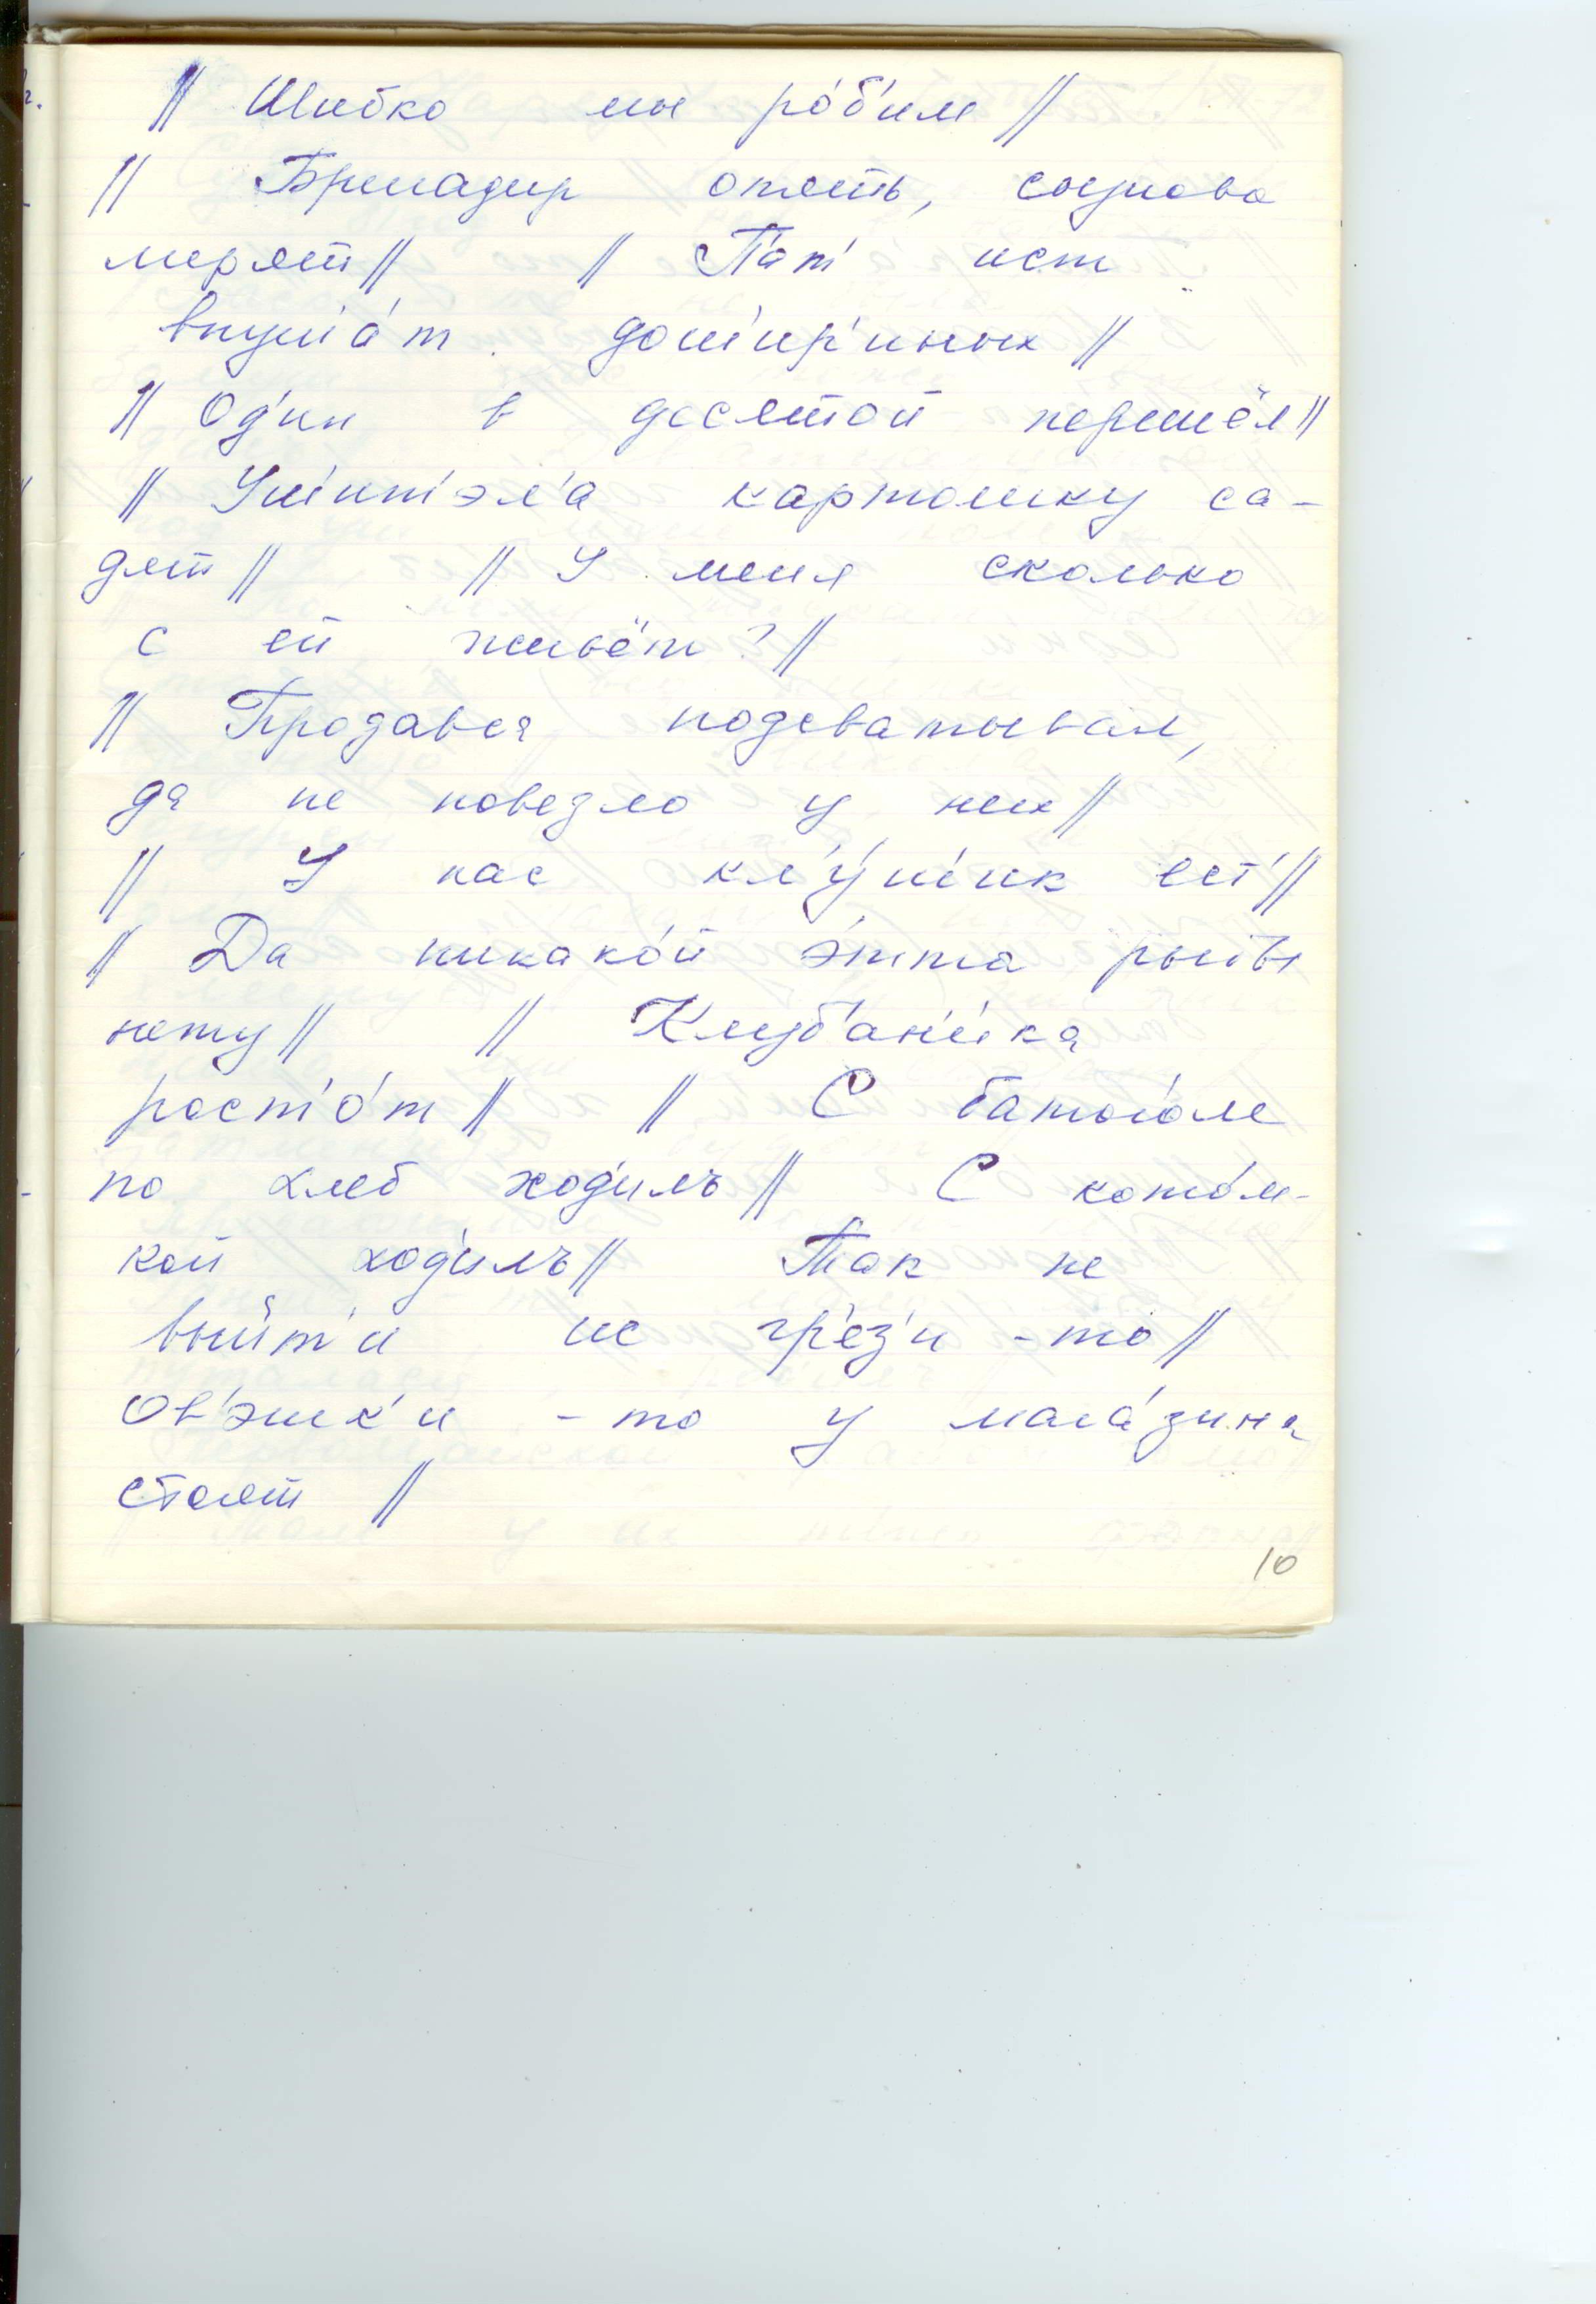 // Шибко мы ро́б'им //
// Бригадир опеть, сызнова
мерят // // П'ат' ист
внуш'а́т дош'ир'иных //
// Од'ин в десятой перешёл //
// Уш'ит'эл'а картошку са-
дят // // У меня сколько
с ей живём? //
// Продався подсватывал,
да не повезло у них //
// У нас кл'у́ш'ик ест' //
// Да никако́й э́тта рыбы
нету // // Клуб'ан'и́ка
раст'о́т // // С батого́м
по хлеб ход'илъ // С кото́м-
кой ход'илъ // Так не
выйт'и ис гр'ез'и -то //
Ов'эшк'и -то у мага́зина
стоят //
10